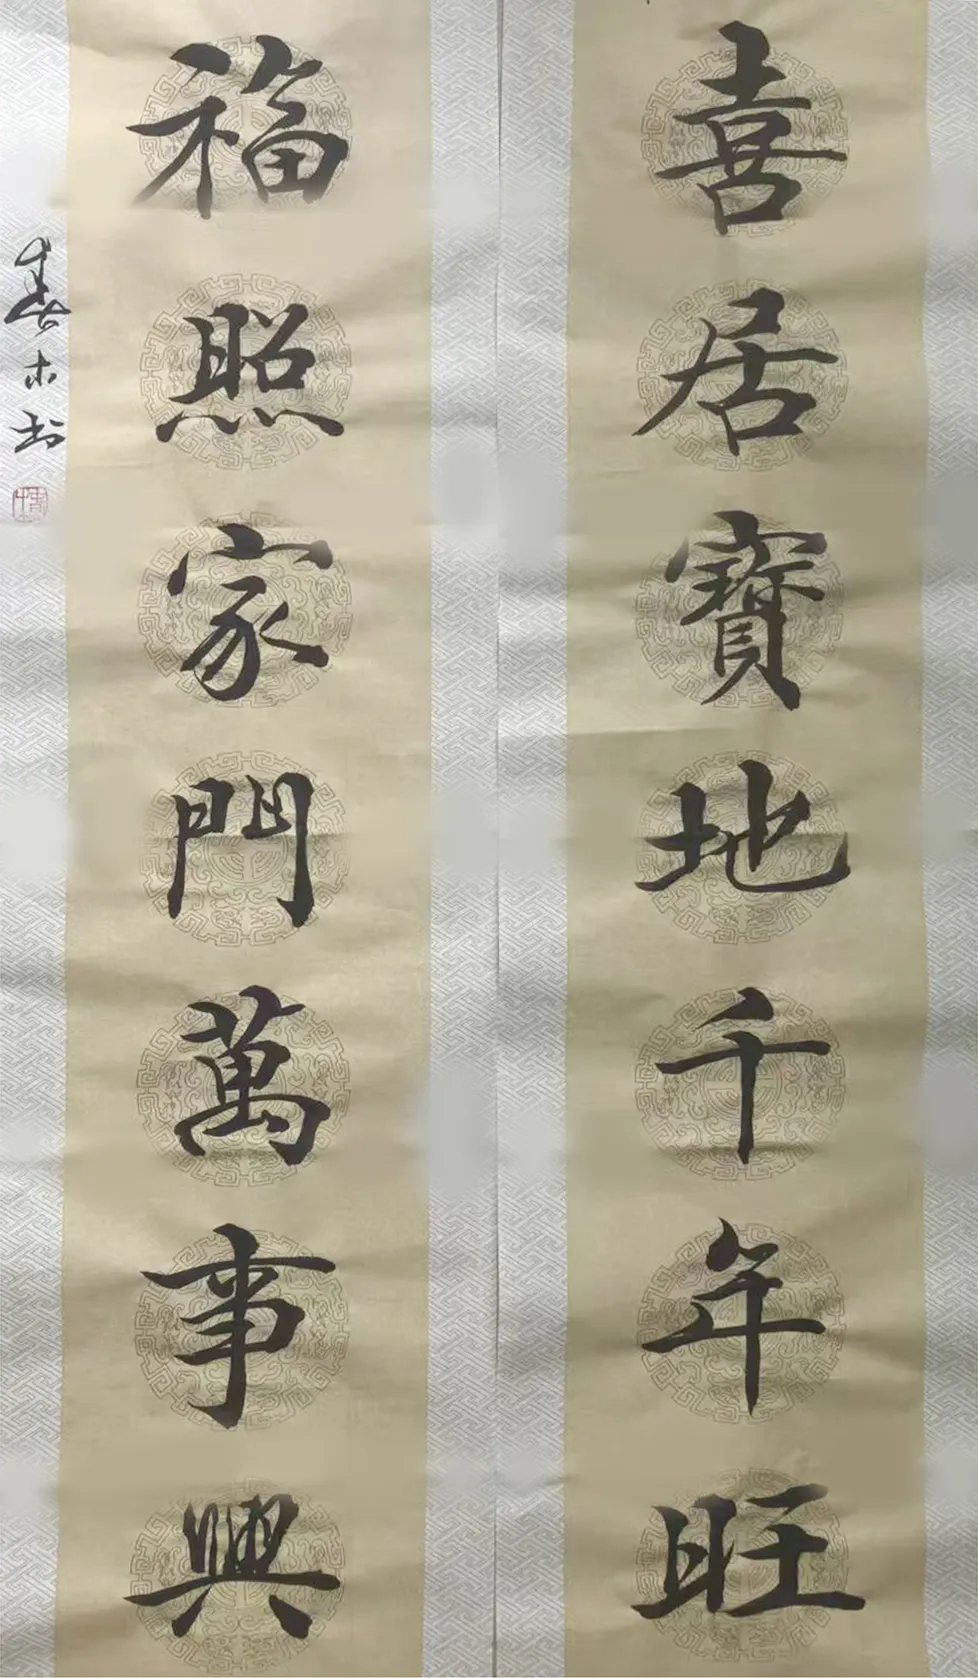 喜居寶地千年旺
福照家門萬事興
春木書